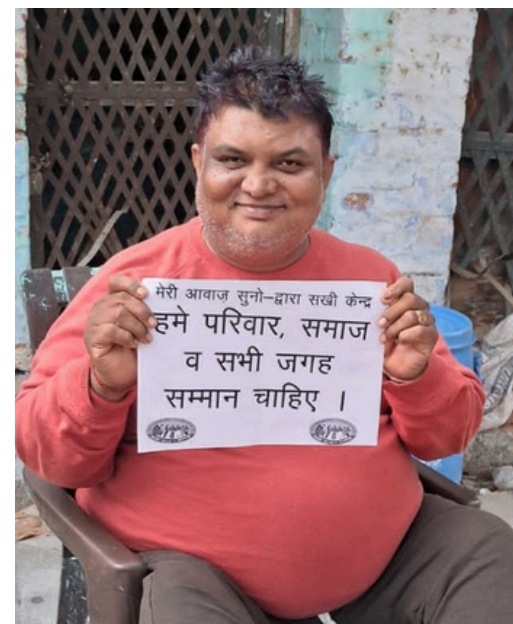 मेरी आवाज़ सुनो–द्वारा सखी केन्द्र
हमे परिवार, समाज
व सभी जगह
सम्मान चाहिए ।